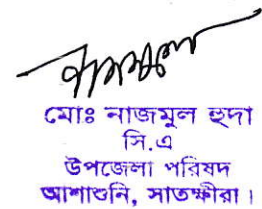 মোঃ নাজমুল হুদা
সি.এ
উপজেলা পরিষদ
আশাশুনি, সাতক্ষীরা।